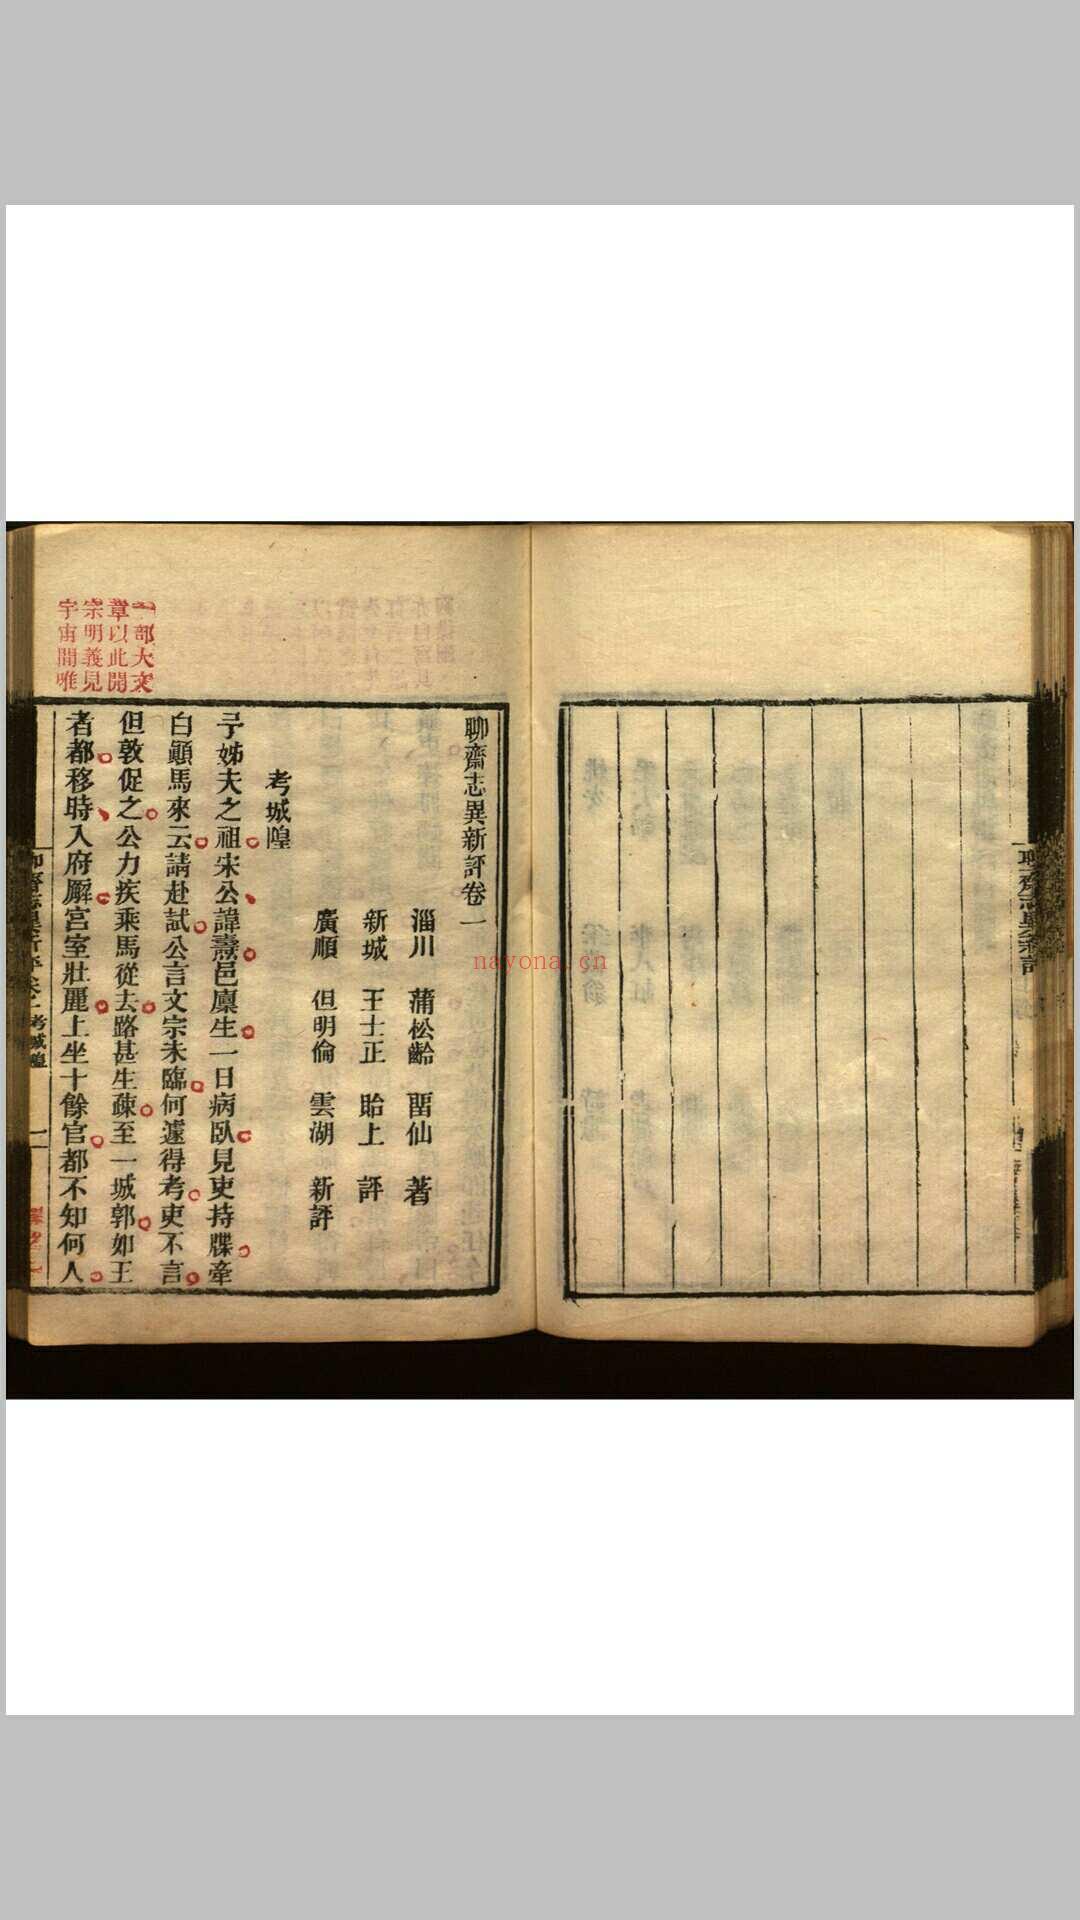 聊齋志異新評卷一
淄川　蒲松齡　畱仙　著
新城　王士正　貽上　評
廣順　但明倫　雲湖　新評
考城隍
予姊夫之祖宋公諱燾邑廩生一日病臥見吏持牒牽
白顚馬來云請赴試公言文宗未臨何遽得考吏不言
但敦促之公力疾乘馬從去路甚生疎至一城郭如王
者都移時入府廨宮室壯麗上坐十餘官都不知何人
一部大文
章以此開
宗明義見
宇宙間唯
考城隍
一
nayona.cn